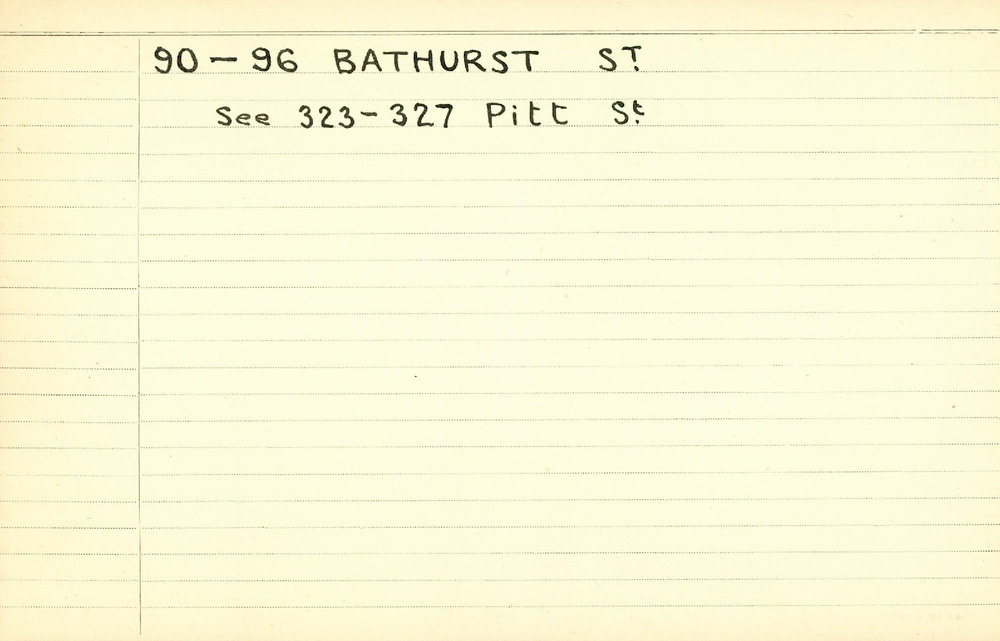 90 – 96 BATHURST ST.
See 323 – 327 Pitt St.